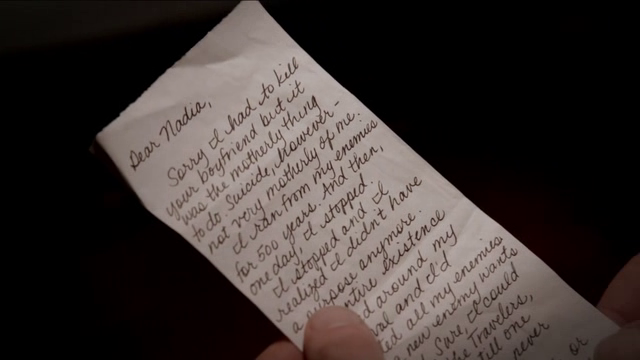 Dear Nadia,
Sorry I had to kill
your boyfriend but it
was the motherly thing
to do. Suicide, however-
not very motherly of me.
I ran from my enemies
for 500 years. And then,
one day, I stopped.
I stopped and I
realized I didn't have
a purpose anymore.
entire existence
around my
and I'd
all my enemies
new enemy wants
Sure, I could
Travelers,
one
never
or